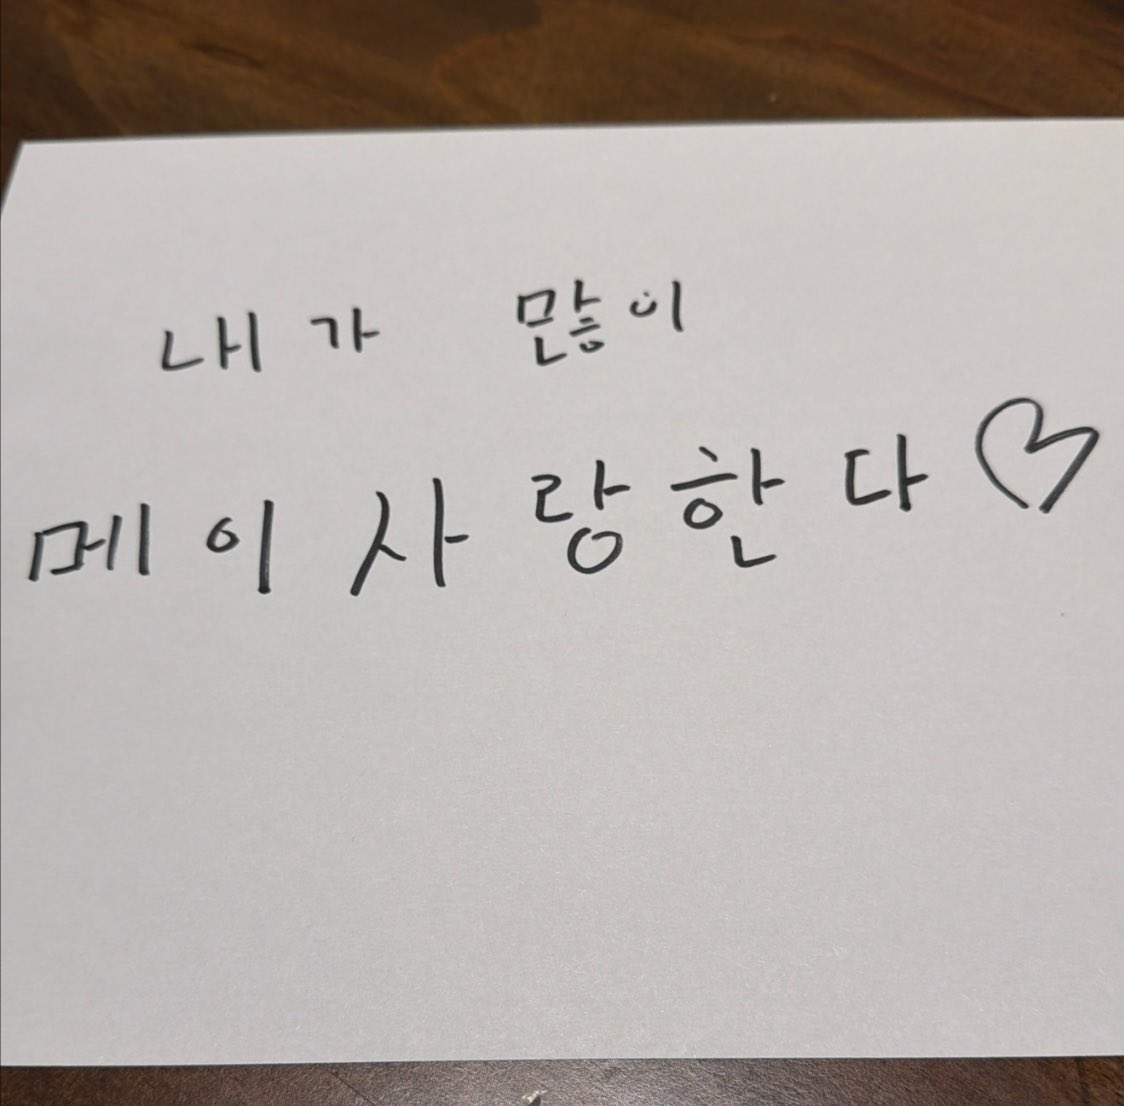 내가 많이
메이 사랑한다♡